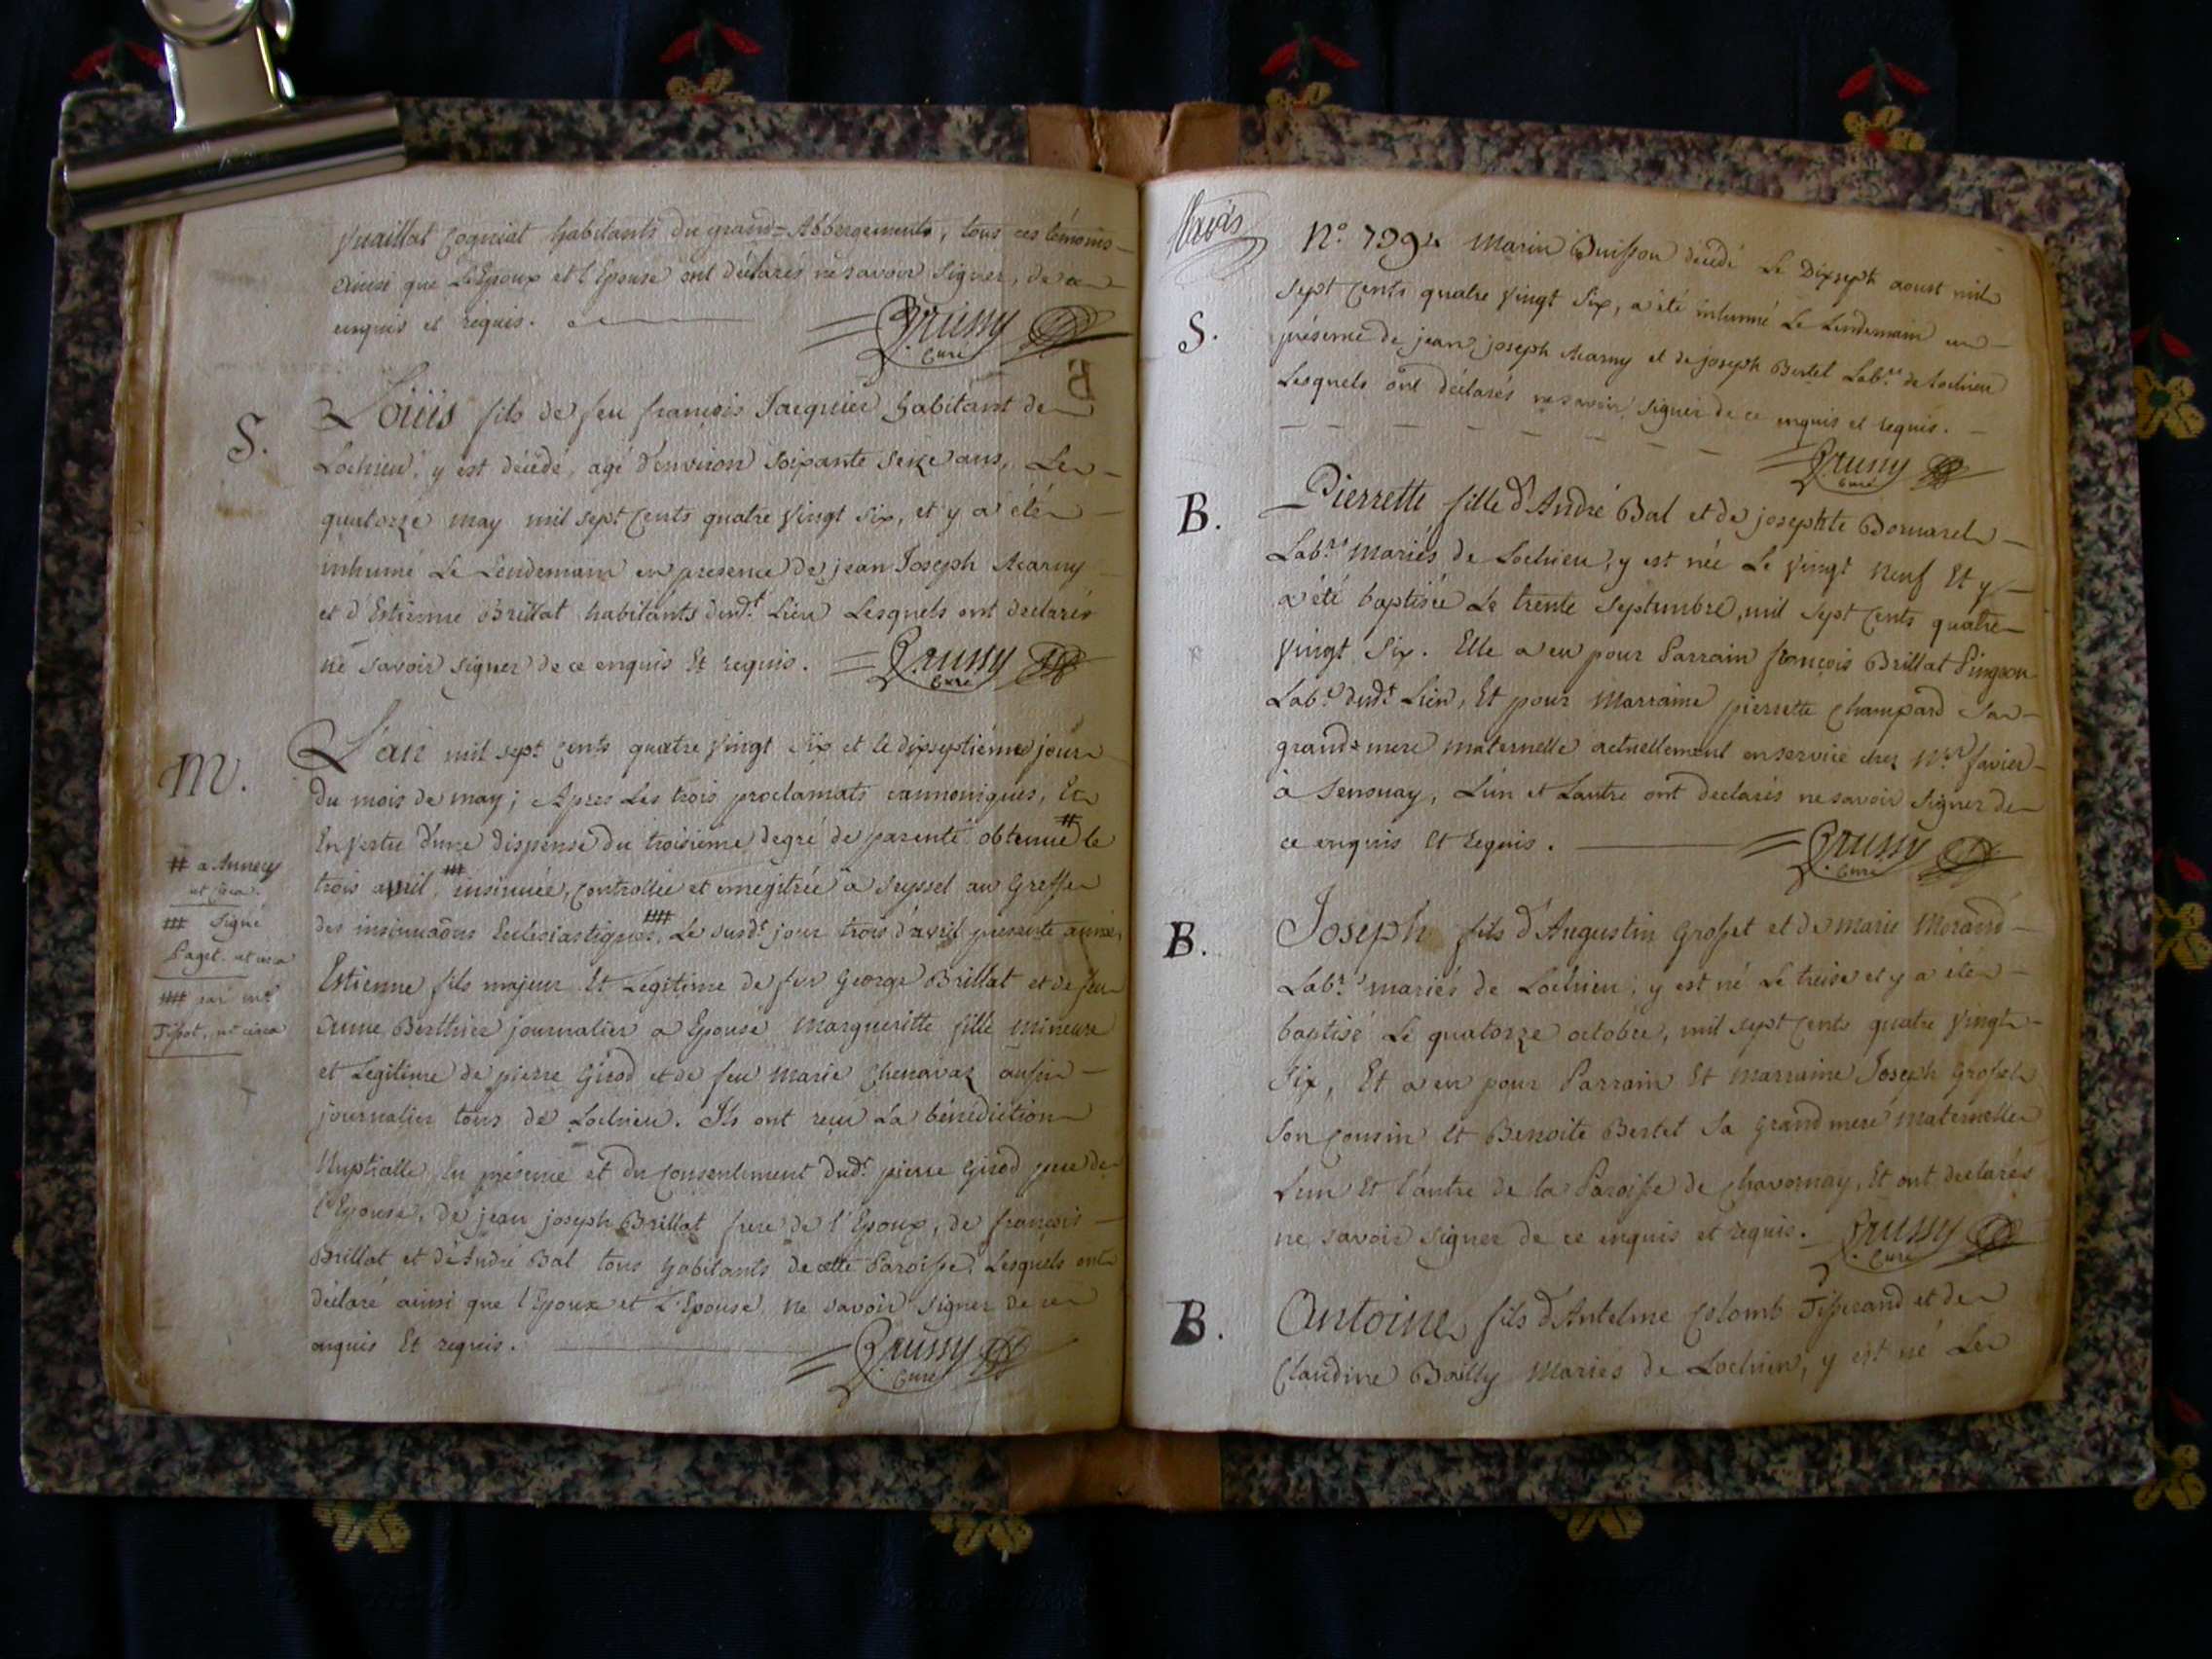 Vuaillat Cogniat habitants du grand=Abbergements, tous ces témoins
ainsi que L'Epoux et l'Epouse ont déclarés ne savoir signer, de ce
enquis et requis.
Crussy
Curé
S.
Loüis fils de feu françois Jacquier habitant de
Lochieu, y est décédé, agé d'environ soixante seize ans, Le
quatorze may mil sept cents quatre vingt six, et y a été
inhumé Le Lendemain en presence de jean Joseph Marny
et d'Estienne Brillat habitants dud.t Lieu Lesquels ont declarés
ne savoir signer de ce enquis Et requis.
Crussy
Curé
M.
L'an mil sept cents quatre vingt six et le dixseptiéme jour
du mois de may; Apres Les trois proclamats cannoniques, Et
En vertu d'une dispense du troisieme degré de parenté obtenuë # le
trois avril, ## insinuée, controllée et enregitrée a Seyssel au Greffe
des insinuaõns Eclesiastiques, ### Le susd.t jour trois d'avril presente année,
Estienne fils majeur Et Legitime de feu George Brillat et de feu
Anne Berthier journalier a Epousé Margueritte fille mineure
et Legitime de pierre Girod et de feu Marie Chenavaz aussi
journalier tous de Lochieu. Ils ont reçu La bénédiction
Nuptialle, En présence et du Consentement dud.t pierre Girod pere de
l'Epouse, de jean joseph Brillat frere de l'Epoux, de françois
Brillat et d'André Bal tous habitants de cette Paroisse, Lesquels ont
déclaré ainsi que l'Epoux et L'Epouse ne savoir signer de ce
enquis Et requis.
Crussy
Curé
# a Annecy
## Signé
Paget.
### par m.e
Tissot,
N.o 7394 Marin Buisson décédé Le Dixsept aoust mil
S.
sept cents quatre vingt six, a été inhumé Le Lendemain en
présence de jean joseph Marny et de joseph Bertet Lab.rs de Lochieu
Lesquels ont déclarés ne savoir signer de ce enquis et requis.
Crussy
Curé
B.
Pierrette fille d'André Bal et de josephte Bornarel
Lab.rs mariés de Lochieu, y est née Le vingt neuf Et y
a été baptisée Le trente septembre, mil sept cents quatre
vingt six. Elle a eu pour Parrain françois Brillat Pingeon
Lab.r dud.t Lieu, Et pour Marraine pierrette Champard sa
grand=mere maternelle actuellement en service chez M.r favier
à Senouay, L'un et Lautre ont declarés ne savoir signer de
ce enquis Et requis.
Crussy
Curé
B.
Joseph fils d'Augustin Grosset et de marie Morand
Lab.rs mariés de Lochieu, y est né Le treise et y a été
baptisé Le quatorze octobre, mil sept cents quatre vingt
six, Et a eu pour Parrain Et marraine Joseph Grosset
son cousin Et Benoite Bertet sa Grand mere maternelle
L'un Et l'autre de la Paroisse de Chavornay, Et ont declarés
ne savoir signer de ce enquis et requis.
Crussy
Curé
B.
Antoine fils d'Antelme Colomb Tisserand et de
Claudine Bailly Mariés de Lochieu, y est né Le